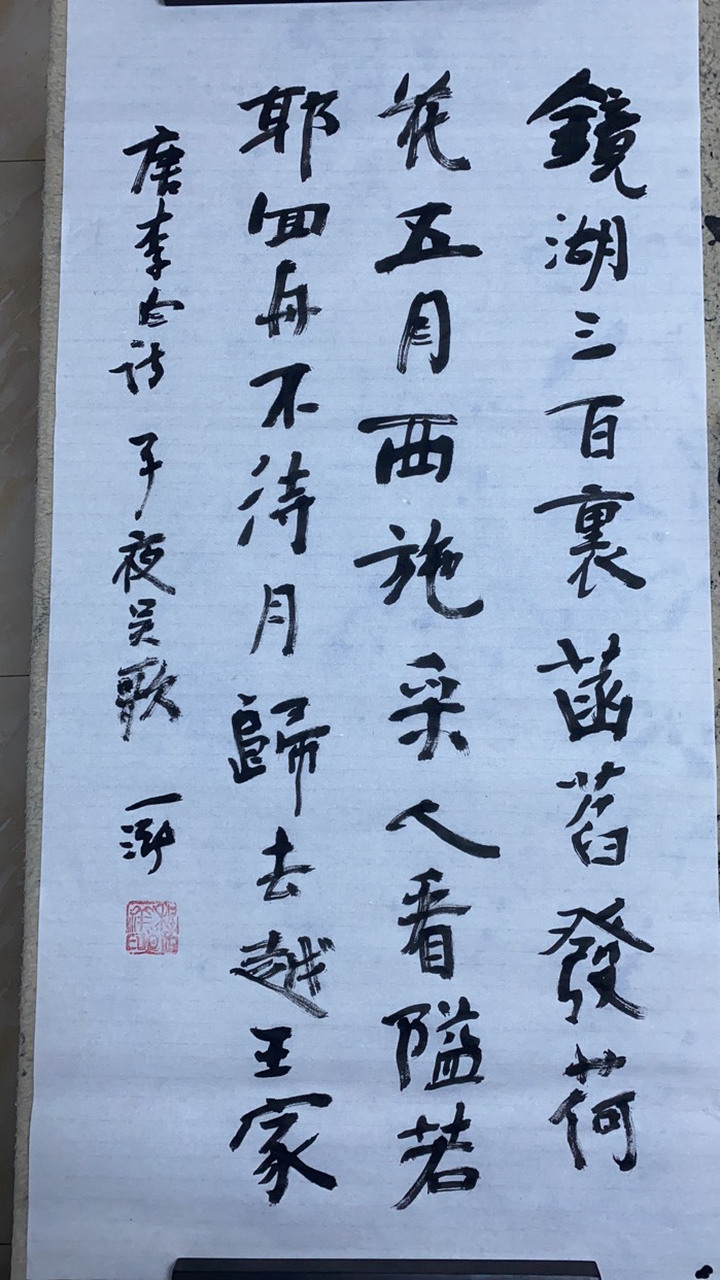 鏡湖三百裏菡萏發荷
花五月西施采人看隘若
耶回舟不待月歸去越王家
唐李白诗 子夜吴歌 一